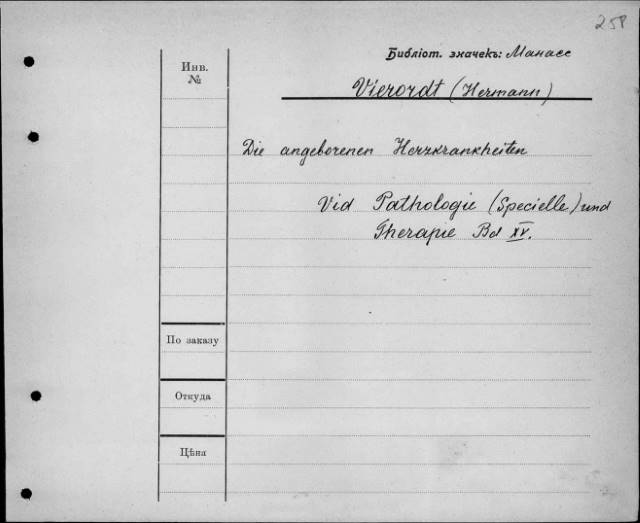 258
Библіот. значекъ: Манасс
Инв.
№
Vierordt (Hermann)
Die angeborenen Herzkrankheiten
Vid Pathologie (Specielle) und
Therapie Bd XV.
По заказу
Откуда
Цѣна